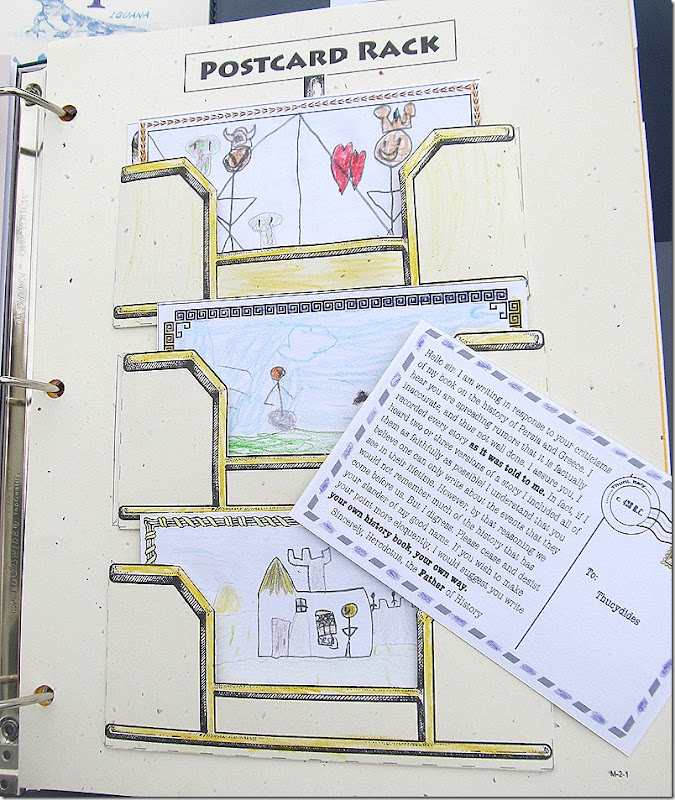 IGUANA
POSTCARD RACK
Hello sir. I am writing in response to your criticisms
of my book on the history of Persia and Greece. I
hear you are spreading rumors that it is factually
inaccurate, and thus not well done. I assure you, I
recorded every story as it was told to me. In fact, if I
heard two or three versions of a story I included all of
them as faithfully as possible! I understand that you
believe one can only write about the events that they
see in their lifetime. However, by that reasoning we
would not remember much of the history that has
come before us. But I digress. Please cease and desist
your slander of my good name. If you wish to make
your point more eloquently, I would suggest you write
your own history book, your own way.
Sincerely, Herodotus, the Father of History
To:
Thucydides
M-2-1